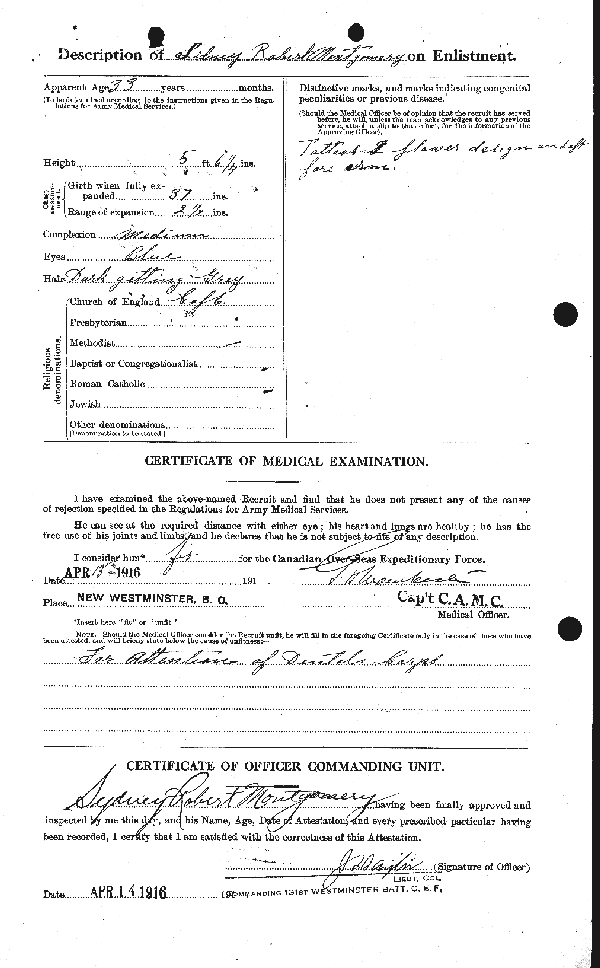 Description of Sidney Robert Montgomery on Enlistment.
Apparent Age 33 years months.
(To be determined according to the instructions given in the Regulations for Army Medical Services.)
Height 5 ft. 6 1/4 ins.
Girth when fully expanded 37 ins.
Range of expansion 2 1/2 ins.
Complexion Medium
Eyes Blue
Hair Dark getting Grey
Religious denominations.
Church of England C of E
Presbyterian
Methodist
Baptist or Congregationalist
Roman Catholic
Jewish
Other denominations
(Denomination to be stated.)
Distinctive marks, and marks indicating congenital
peculiarities or previous disease.
(Should the Medical Officer be of opinion that the recruit has served
before, he will, unless the man acknowledges to any previous
service, attach a slip to that effect, for the information of the
Approving Officer).
flower design
fore arm.
CERTIFICATE OF MEDICAL EXAMINATION.
I have examined the above-named Recruit and find that he does not present any of the causes
of rejection specified in the Regulations for Army Medical Services.
He can see at the required distance with either eye; his heart and lungs are healthy; he has the
free use of his joints and limbs, and he declares that he is not subject to fits of any description.
I consider him* fit for the Canadian Over-Seas Expeditionary Force.
Date APR 13 1916 191
Place NEW WESTMINSTER, B. C. Cap't C.A.M.C.
Medical Officer.
*Insert here "fit" or "unfit."
NOTE. Should the Medical Officer consider the Recruit unfit, he will fill in the foregoing Certificate only in the case of those who have
been attested, and will briefly state below the cause of unfitness:—
For Attention of Dental Corps
CERTIFICATE OF OFFICER COMMANDING UNIT.
Sydney Robert Montgomery having been finally approved and
inspected by me this day, and his Name, Age, Date of Attestation, and every prescribed particular having
been recorded, I certify that I am satisfied with the correctness of this Attestation.
(Signature of Officer)
LIEUT. COL.
Date APR 14 1916 COMMANDING 131ST WESTMINSTER BATT. C. E. F.